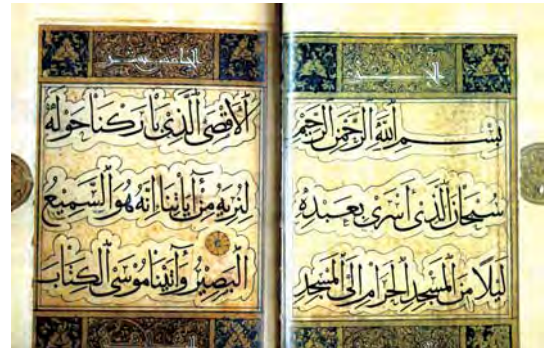 الجزء
بِسْمِ اللَّهِ الرَّحْمَنِ الرَّحِيمِ
سُبْحَانَ الَّذِي أَسْرَى بِعَبْدِهِ
لَيْلًا مِنَ الْمَسْجِدِ الْحَرَامِ إِلَى الْمَسْجِدِ
الخامس عشر
الْأَقْصَى الَّذِي بَارَكْنَا حَوْلَهُ
لِنُرِيَهُ مِنْ آيَاتِنَا إِنَّهُ هُوَ السَّمِيعُ
الْبَصِيرُ وَآتَيْنَا مُوسَى الْكِتَابَ